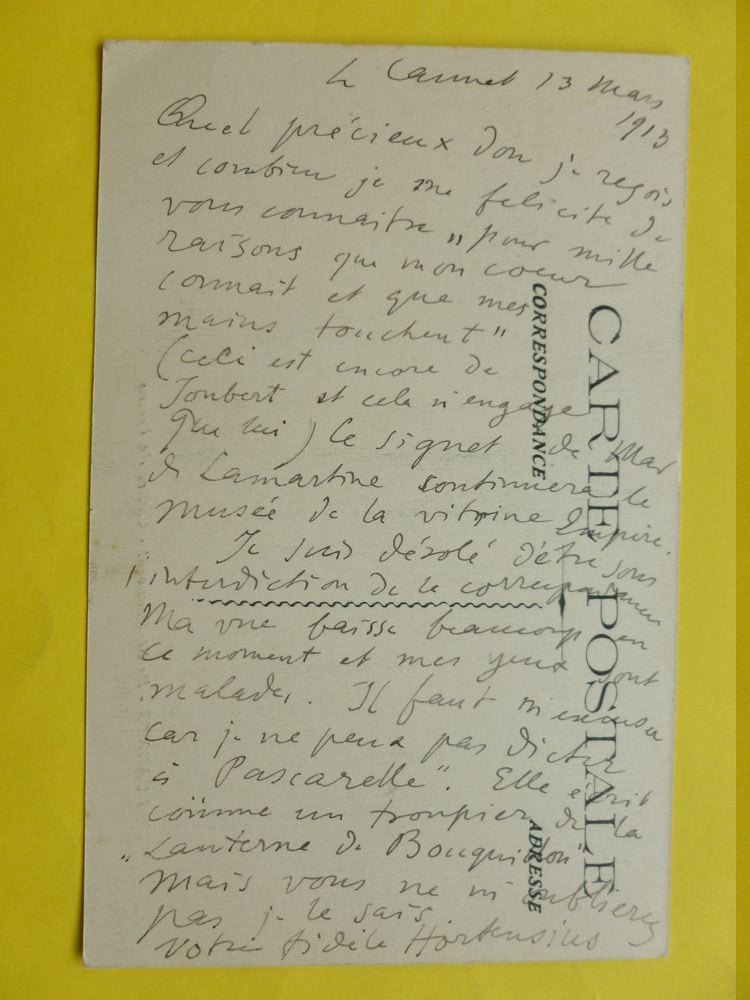 Le Cannet 13 Mars
1913
Quel précieux don je reçois
et combien je me félicite de
vous connaitre „pour mille
raisons que mon coeur
connait et que mes
mains touchent"
(ceci est encore de
Joubert et cela n'engage
que lui) Le signet de
de Lamartine continuera le
musée de la vitrine Empire.
Je suis désolé d'être sous
interdiction de la correspondance
Ma vue baisse beaucoup en
ce moment et mes yeux sont
malades. Il faut m'excuser
car je ne peux pas dicter
à Pascarelle". Elle écrit
comme un troupier de la
„Lanterne de Bouquillon"
Mais vous ne m'oublierez
pas je le sais.
Votre fidèle Hortensius
CARTE POSTALE
CORRESPONDANCE
ADRESSE